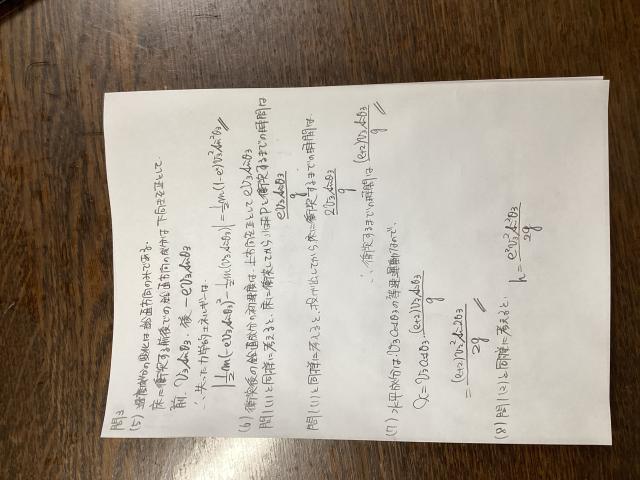 問3
(5) 速度成分の変化は鉛直方向のみである。
床に衝突する前後の鉛直方向の成分は下向きを正として、
前、v₃sinθ₃、後 −ev₃sinθ₃
∴失った力学的エネルギーは、
|½m(−ev₃sinθ₃)² − ½m(v₃sinθ₃)²| = ½m(1−e²)v₃²sin²θ₃
(6) 衝突後の鉛直成分の初速度は、上方向を正として ev₃sinθ₃
問1(1)と同様に考えると、床に衝突してから小球Pと衝突するまでの時間は
ev₃sinθ₃/g
問1(1)と同様に考えると、投げ出してから床に衝突するまでの時間は、
2v₃sinθ₃/g
∴衝突するまでの時間は (e+2)v₃sinθ₃/g
(7) 水平成分は、v₃cosθ₃の等速運動なので、
x = v₃cosθ₃・(e+2)v₃sinθ₃/g
= (e+2)v₃²sin2θ₃/2g
(8) 問1(2)と同様に考えると、 h = e²v₃²sin²θ₃/2g